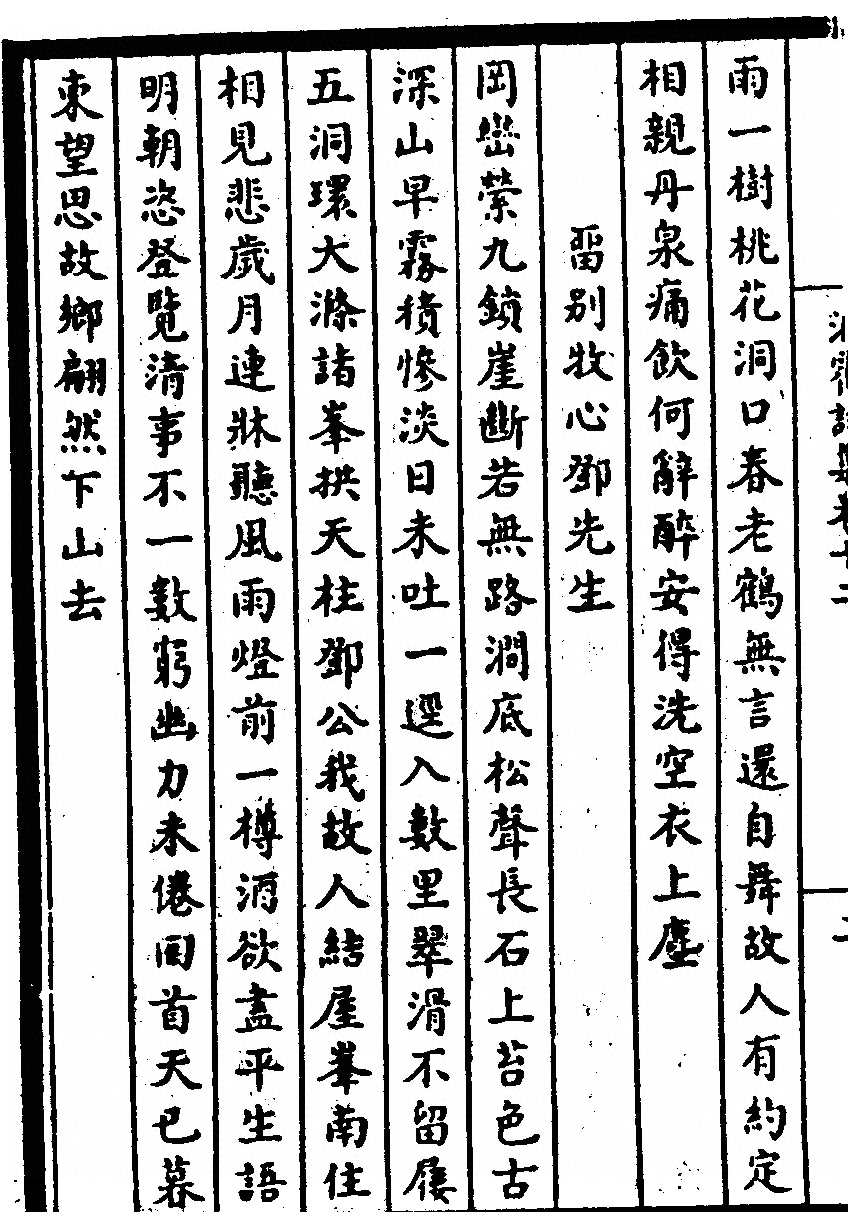 雨一樹桃花洞口春老鶴無言還自舞故人有約定
相親丹泉痛飲何辭醉安得洗空衣上塵
畱别牧心鄧先生
岡巒縈九鎖崖斷若無路澗底松聲長石上苔色古
深山早霧積慘淡日未吐一逕入數里翠滑不留屨
五洞環大滌諸峯拱天柱鄧公我故人結屋峯南住
相見悲歲月連牀聽風雨燈前一樽酒欲盡平生語
明朝恣登覽清事不一數窮幽力未倦囘首天已暮
東望思故鄉翩然下山去